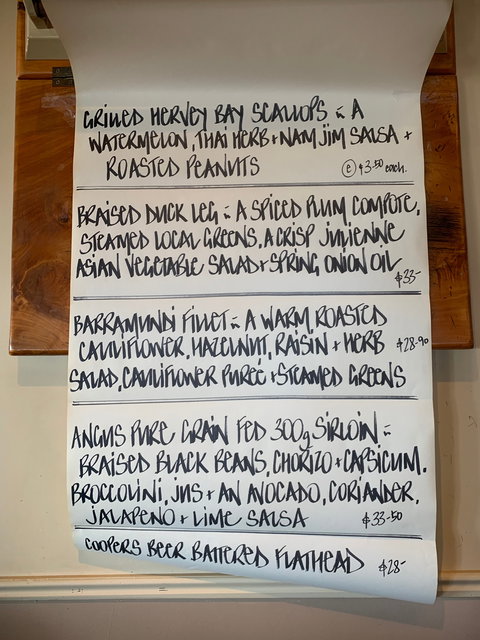 GRILLED HERVEY BAY SCALLOPS ~ A
WATERMELON, THAI HERB + NAM JIM SALSA +
ROASTED PEANUTS
(e) $3-50 each.
BRAISED DUCK LEG ~ A SPICED PLUM COMPOTE,
STEAMED LOCAL GREENS, A CRISP JULIENNE
ASIAN VEGETABLE SALAD + SPRING ONION OIL
$33-
BARRAMUNDI FILLET ~ A WARM, ROASTED
CAULIFLOWER, HAZELNUT, RAISIN + HERB $28-90
SALAD, CAULIFLOWER PUREE + STEAMED GREENS
ANGUS PURE GRAIN FED 300g SIRLOIN ~
BRAISED BLACK BEANS, CHORIZO + CAPSICUM.
BROCCOLINI, JUS + AN AVOCADO, CORIANDER,
JALAPENO + LIME SALSA $33-50
COOPERS BEER BATTERED FLATHEAD $28-